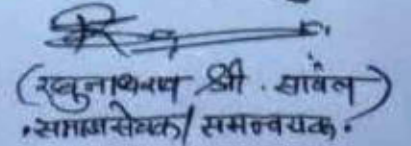 (रघुनाथराव श्री. सावंत)
समाजसेवक/समन्वयक.